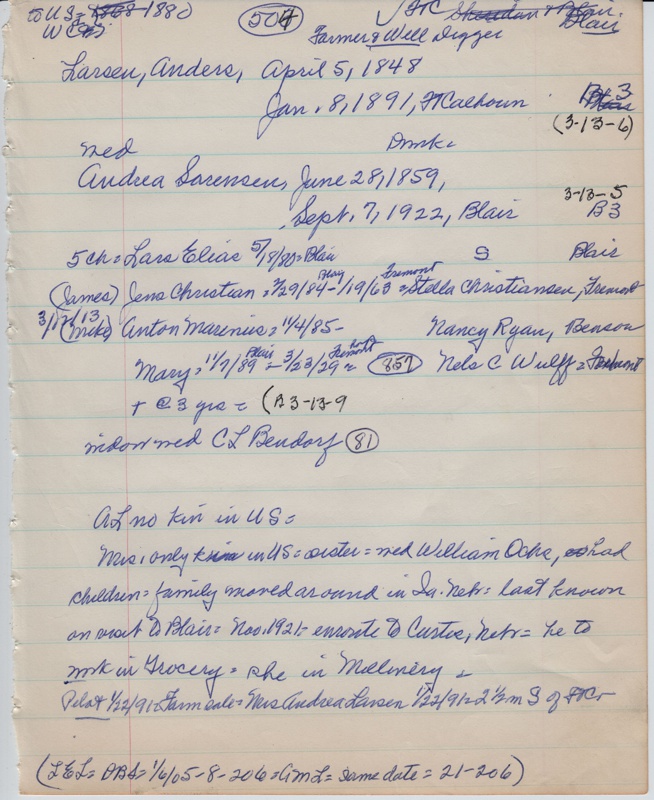 to US = 1868-1880 504 Ft C Sheridan + Blair
W C Farmer & Well Digger Blair
Larsen, Anders, April 5, 1848
Jan. 8, 1891, Ft Calhoun B 3
(3-13-6)
med Dmk =
Andrea Sorensen, June 28, 1859, 3-13-5
Sept. 7, 1922, Blair B 3
5 ch = Lars Elias 5/18/80 = Blair S Blair
(James) Jens Christian = 7/29/84 Blair - 1/19/63 Fremont = Stella Christiansen, Fremont
3/12/13
(Mike) Anton Marinius = 11/4/85 - Nancy Ryan, Benson
Mary = 11/7/89 Blair - 3/23/29 Fremont = 857 Nels C Wulff = Fremont
+ @ 3 yrs = (B 3-13-9
widow med C L Bendorf 81
AL no kin in US =
Mrs. only kin in US = sister = med William Ochs, had
children = family moved around in Ia. Nebr = last known
on visit to Blair = Nov. 1921 = enroute to Curtis, Nebr = he to
work in Grocery = she in Millinery =
Pilot 1/22/91 = Farm sale = Mrs Andrea Larsen 1/22/91 = 2 1/2 m S of Ft C
(LEL = DB6 = 1/6/05-8-206 = AML = same date = 21-206)